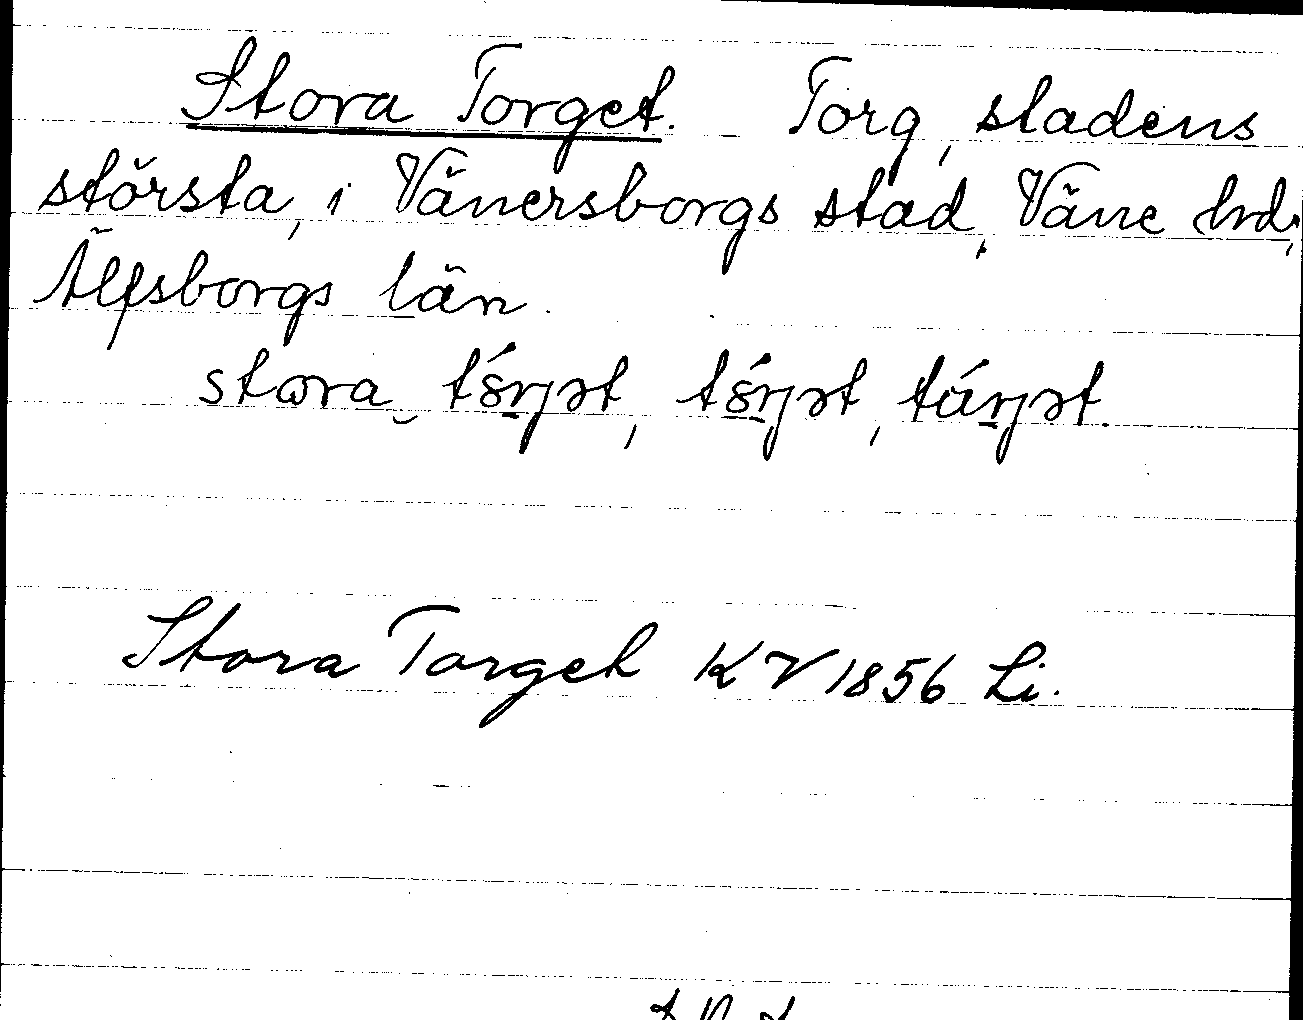 Stora Torget. Torg, stadens
största, i Vänersborgs stad, Väne hd,
Älfsborgs län.
stora
Stora Torget KV 1856 Li.